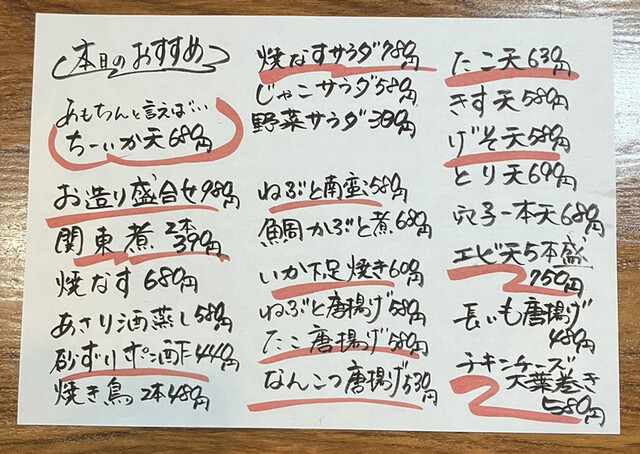 本日のおすすめ
あもちんと言えば…
ちーいか天680円
お造り盛合せ980円
関東煮 2本
390円
焼なす 680円
あさり酒蒸し580円
砂ずりポン酢440円
焼き鳥 2本480円
焼なすサラダ780円
じゃこサラダ580円
野菜サラダ380円
ねぶと南蛮580円
鯛かぶと煮680円
いか下足焼き600円
ねぶと唐揚げ580円
たこ唐揚げ580円
なんこつ唐揚げ530円
たこ天630円
きす天580円
げそ天580円
とり天690円
穴子一本天680円
エビ天5本盛
750円
長いも唐揚げ
480円
チキンチーズ
大葉巻き
580円